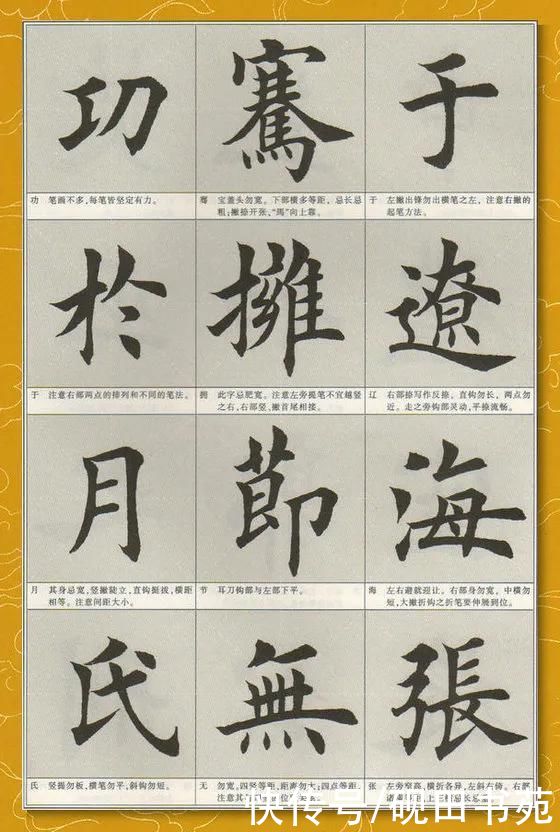 功 騫 于
功 笔画不多,每笔皆坚定有力。
骞 宝盖头勿宽。下部横多等距,忌长忌
粗;撇捺开张,“馬”向上靠。
于 左撇出锋勿出横笔之左,注意右撇的
起笔方法。
於 擁 遼
于 注意右部两点的排列和不同的笔法。
拥 此字忌肥宽。注意左旁提笔不宜越竖
之右,右部竖、撇首尾相接。
辽 右部捺写作反捺,直钩勿长,两点勿
近。走之旁钩部灵动,平捺流畅。
月 節 海
月 其身忌宽,竖撇陡立,直钩挺拔,横距
相等。注意间距大小。
节 耳刀钩部与左部下平。
海 左右避就迎让。右部身勿宽,中横勿
短,大撇折钩之折笔要伸展到位。
氏 無 張
氏 竖提勿板,横笔勿平;斜钩勿短。
无 勿宽,四竖等距,距离勿大;四点等距,
注意其
张 左旁窄高,横折各异,左斜右倚。右部
快传号/砚田书苑